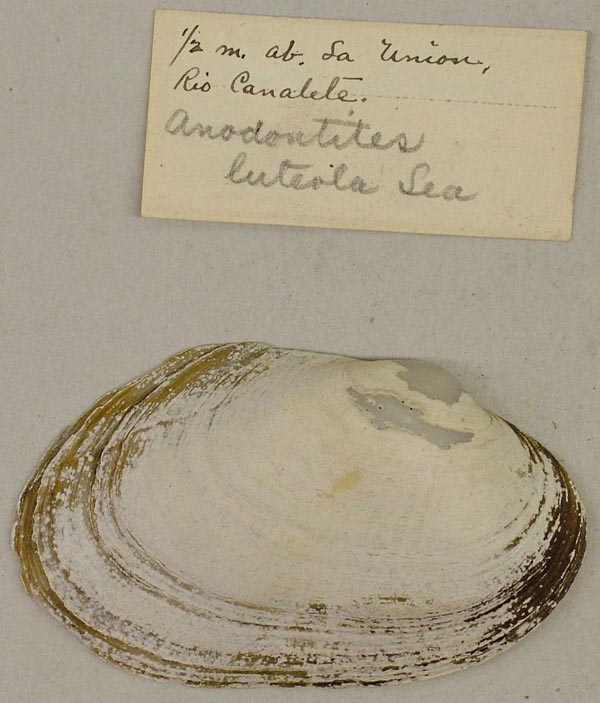 1/2 m. ab. La Union,
Rio Canalete.
Anodontites
luteola Lea